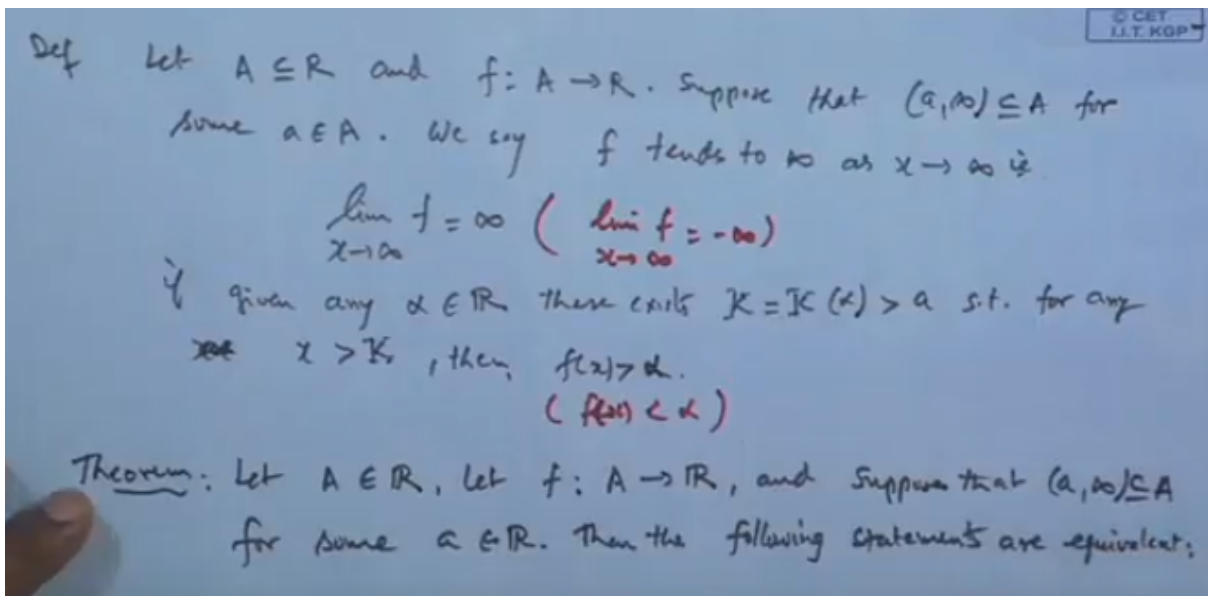 © CET
I.I.T. KGP
Def Let A ⊆ R and f: A → R. Suppose that (a,∞) ⊆ A for
some a ∈ A. We say f tends to ∞ as x → ∞ is
lim f = ∞ ( lim f = -∞)
x→∞ x→∞
if given any α ∈ ℝ there exists K = K(α) > a s.t. for any
x > K, then, f(x) > α.
( f(x) < α )
Theorem: Let A ∈ ℝ, Let f: A → ℝ, and suppose that (a,∞) ⊆ A
for some a ∈ ℝ. Then the following statements are equivalent: